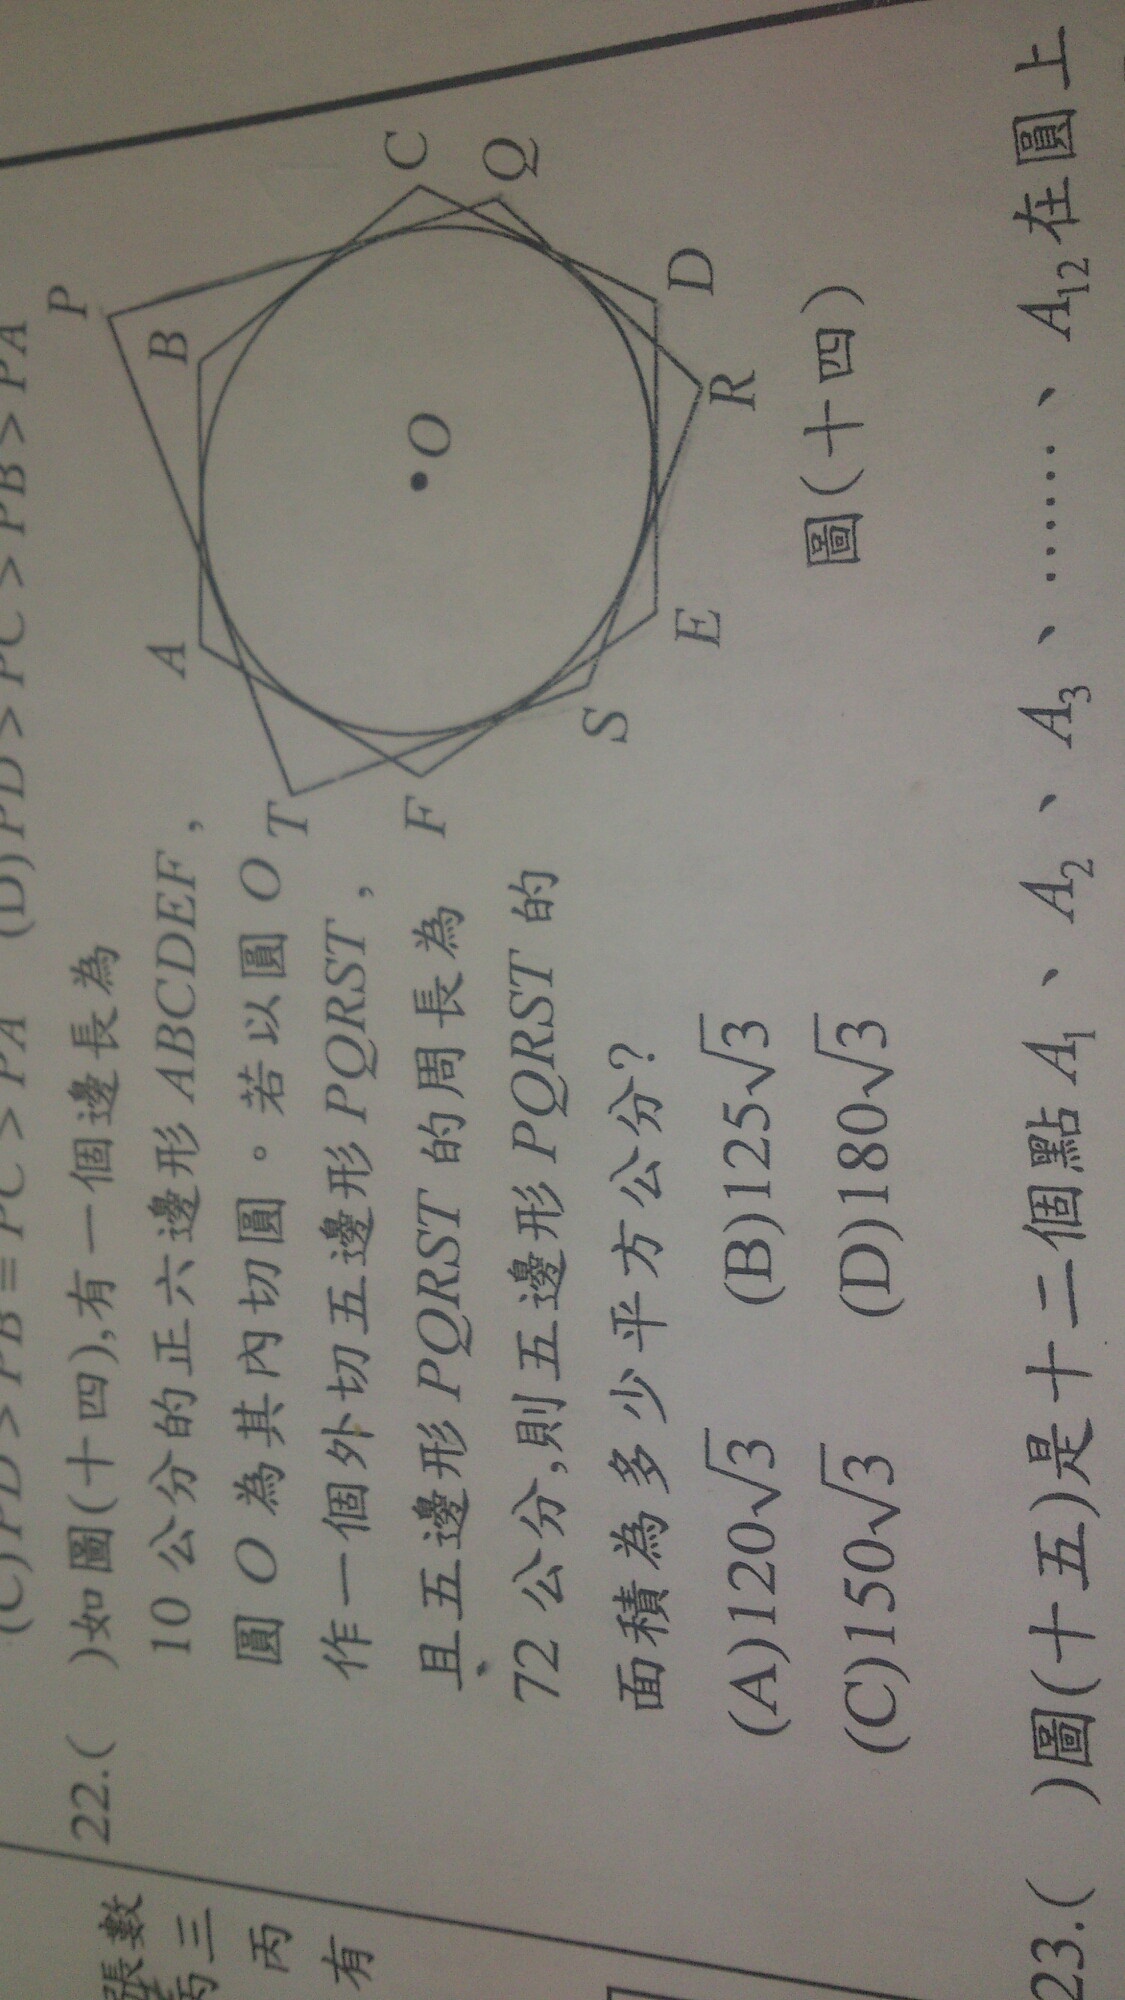 (C)PD>PB=PC>PA (D)PD>PC>PB>PA
22.( )如圖(十四),有一個邊長為
10公分的正六邊形ABCDEF,
圓O為其內切圓。若以圓O
作一個外切五邊形PQRST,
且五邊形PQRST的周長為
72公分,則五邊形PQRST的
面積為多少平方公分?
(A)120√3 (B)125√3
(C)150√3 (D)180√3
P
B
A
C
Q
T
O
F
D
S
E
R
圖(十四)
23.( )圖(十五)是十二個點A₁、A₂、A₃、……、A₁₂在圓上
張數
丙三
丙
有